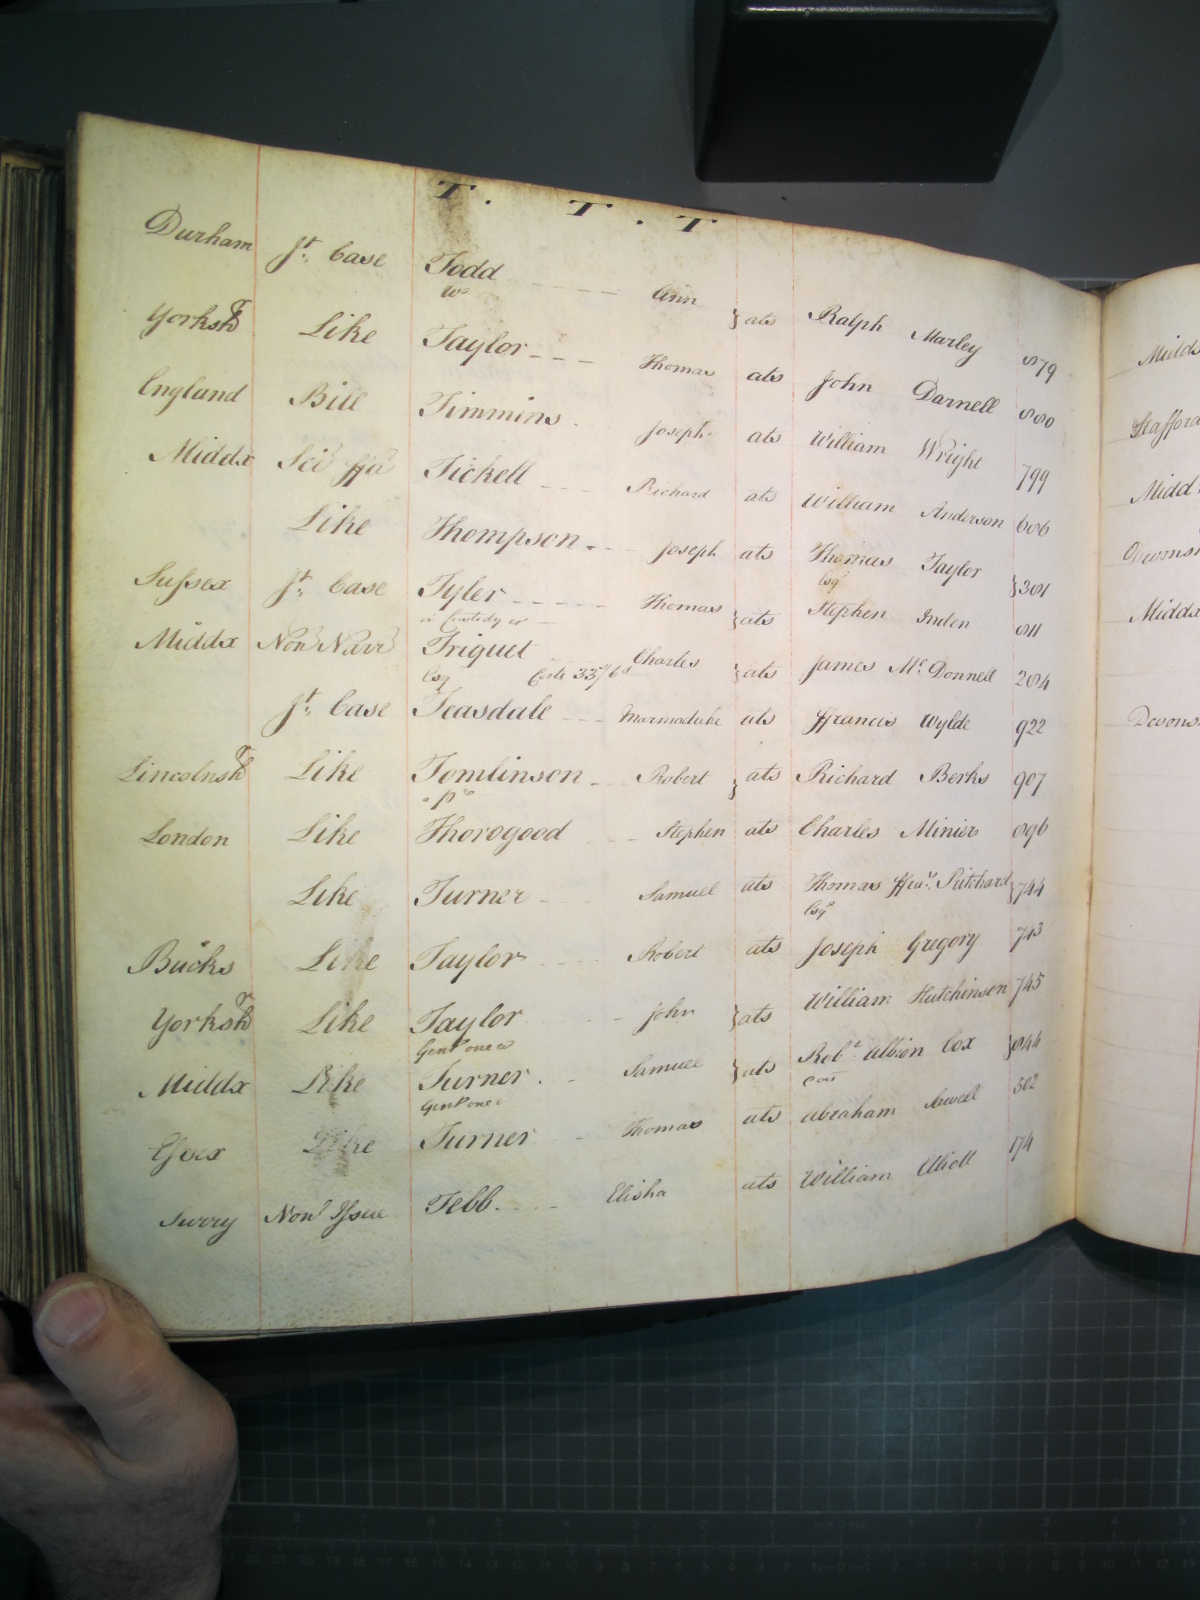 T. T. T
Durham Jt. Case Todd Ann } ats Ralph Marley 879
Wo
Yorksh Like Taylor Thomas ats John Darnell 880
England Bill Timmins Joseph ats William Wright 799
Middx Sci ffa Tickell Richard ats William Anderson 686
Like Thompson Joseph ats Thomas Taylor } 381
Esqr
Sussex Jt. Case Tyler Thomas } ats Stephen Inden 811
in Custody
Middx Non Narr Triquet Charles } ats James Mc Donnell 284
Esq Costs 33/6d
Jt. Case Teasdale Marmaduke ats ffrancis Wylde 922
Lincolnsh Like Tomlinson Robert } ats Richard Berks 907
London Like Thorogood Stephen ats Charles Minier 896
Like Turner Samuel ats Thomas ffras. Pritchard } 744
Esqr
Bucks Like Taylor Robert ats Joseph Gregory 743
Yorksh Like Taylor John } ats William Hutchinson 745
Gent one &
Middx Like Turner Samuel } ats Robt. Albion Cox } 844
Gent one &
Essex Like Turner Thomas ats Abraham Sawell 302
Surry Non Issue Tebb Elisha ats William Elliott 174
Midds
Stafford
Midd
Devonsh
Middx
Devons